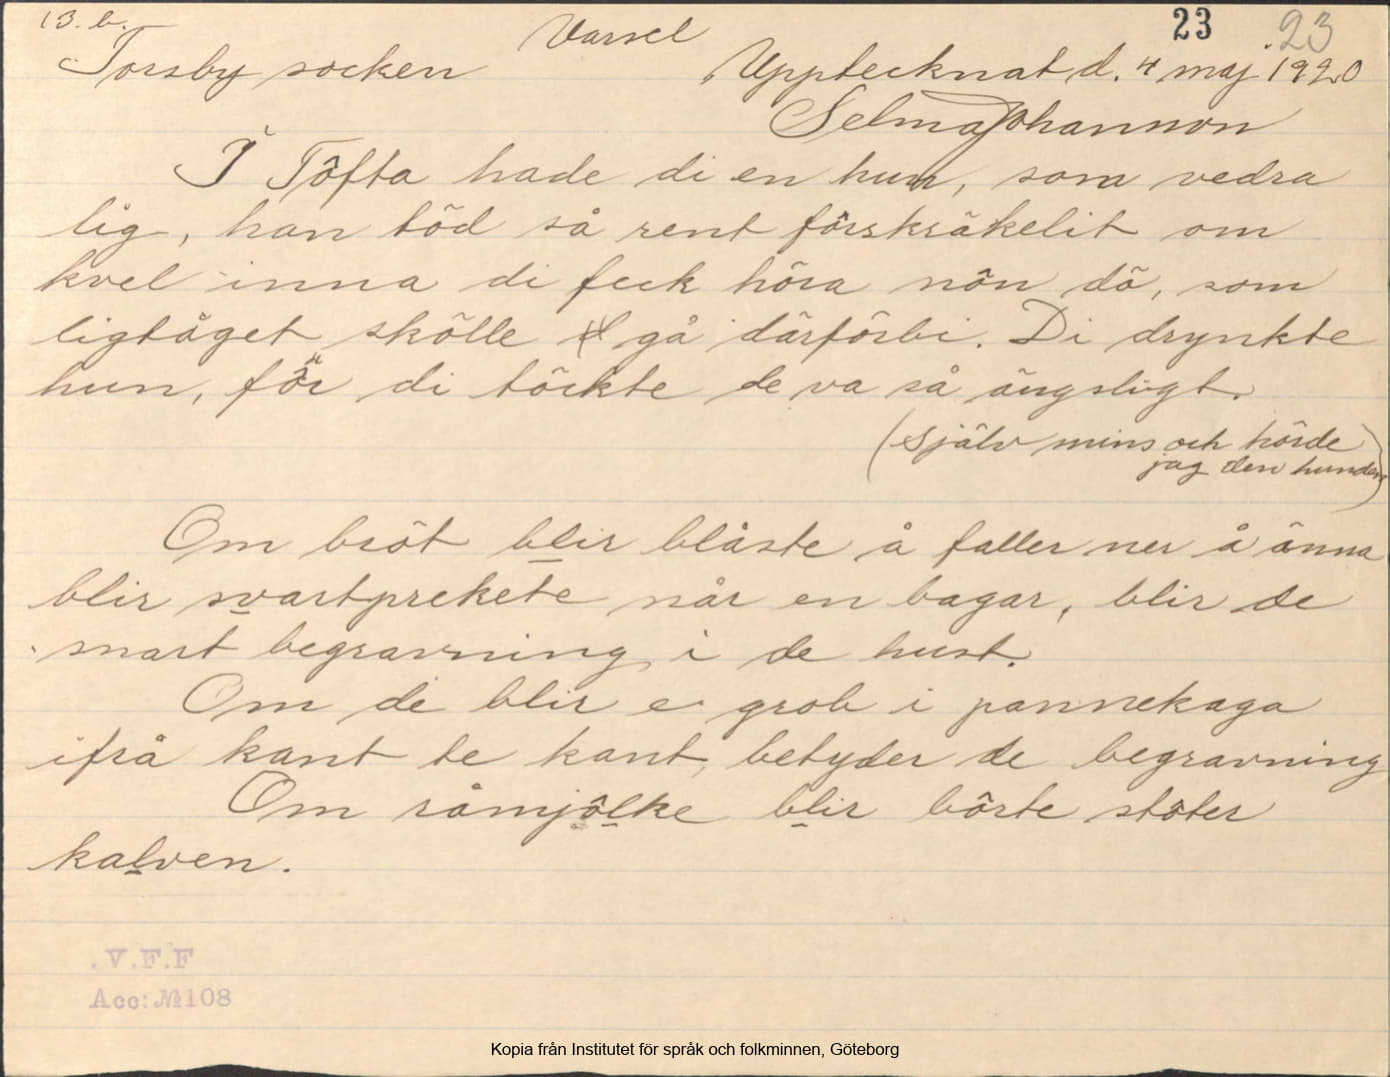 13. b.
Varsel
23 23
Torsby socken
Upptecknat d. 4 maj 1920
Selma Johansson
I Tôfta hade di en hun, som vedra
lig, han töd så rent förskräkelit om
kvel inna di feck höra nôn dö, som
ligtåget skölle gå därförbi. Di drynkte
hun, för di töckte de va så ängsligt.
(Själv mins och hörde
jag den hunden)
Om bröt blir blåste å faller ner å änna
blir svartprekete når en bagar, blir de
snart begravning i de hust.
Om de blir e grob i pannekaga
ifrå kant te kant, betyder de begravning
Om råmjôlke blir börte stöter
kalven.
V.F.F
Acc: № 108
Kopia från Institutet för språk och folkminnen, Göteborg